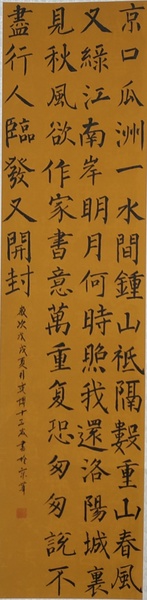 京口瓜洲一水間鍾山祇隔數重山春風
又綠江南岸明月何時照我還洛陽城裏
見秋風欲作家書意萬重复恐匆匆說不
盡行人臨發又開封
歲次戊戌夏月
十三歲書於京華